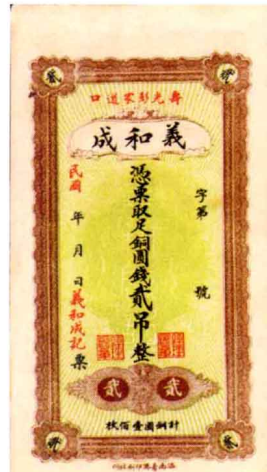 壽光彭家道口
義和成
字第　號
憑票取足銅圓錢貳吊整
民國　年　月　日義和成記票
貳　貳
計銅圓壹佰枚